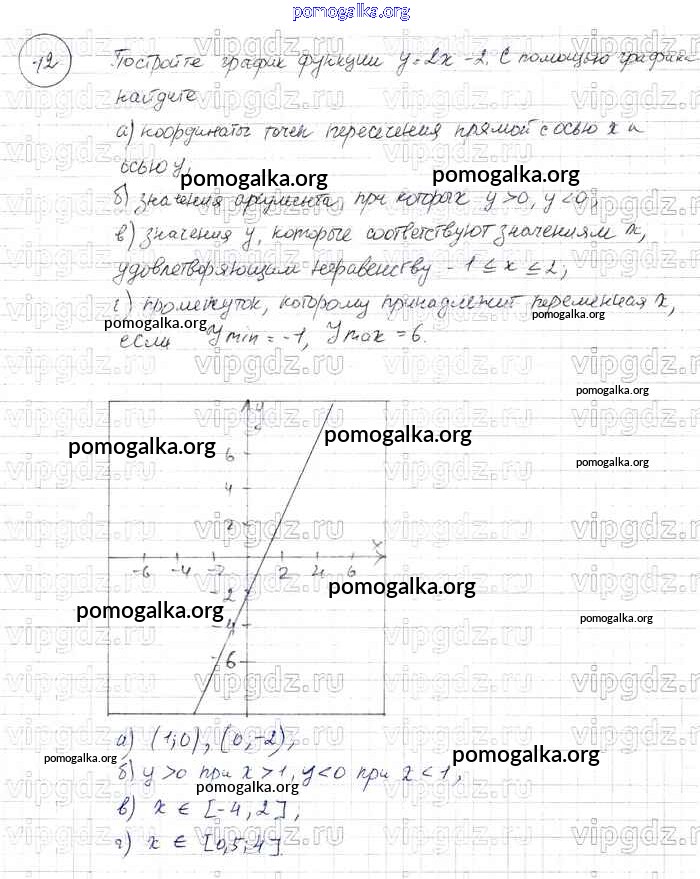 pomogalka.org
12
Постройте график функции y=2x-2. С помощью графика
найдите
а) координаты точек пересечения прямой с осью x и
осью y,
pomogalka.org
б) значения аргумента, при которых y>0, y<0;
в) значения y, которые соответствуют значениям x,
удовлетворяющим неравенству -1 ≤ x ≤ 2;
г) промежуток, которому принадлежит переменная x,
pomogalka.org pomogalka.org
если ymin = -1, ymax = 6.
pomogalka.org
y
pomogalka.org pomogalka.org
6
pomogalka.org
4
2
x
-6 -4 -2 2 4 6
-2 pomogalka.org
pomogalka.org
-4 pomogalka.org
-6
а) (1;0), (0,-2),
pomogalka.org pomogalka.org
б) y>0 при x>1, y<0 при x<1,
pomogalka.org
в) x ∈ [-4,2],
г) x ∈ [0,5;4].
pomogalka.org
vipgdz.ru